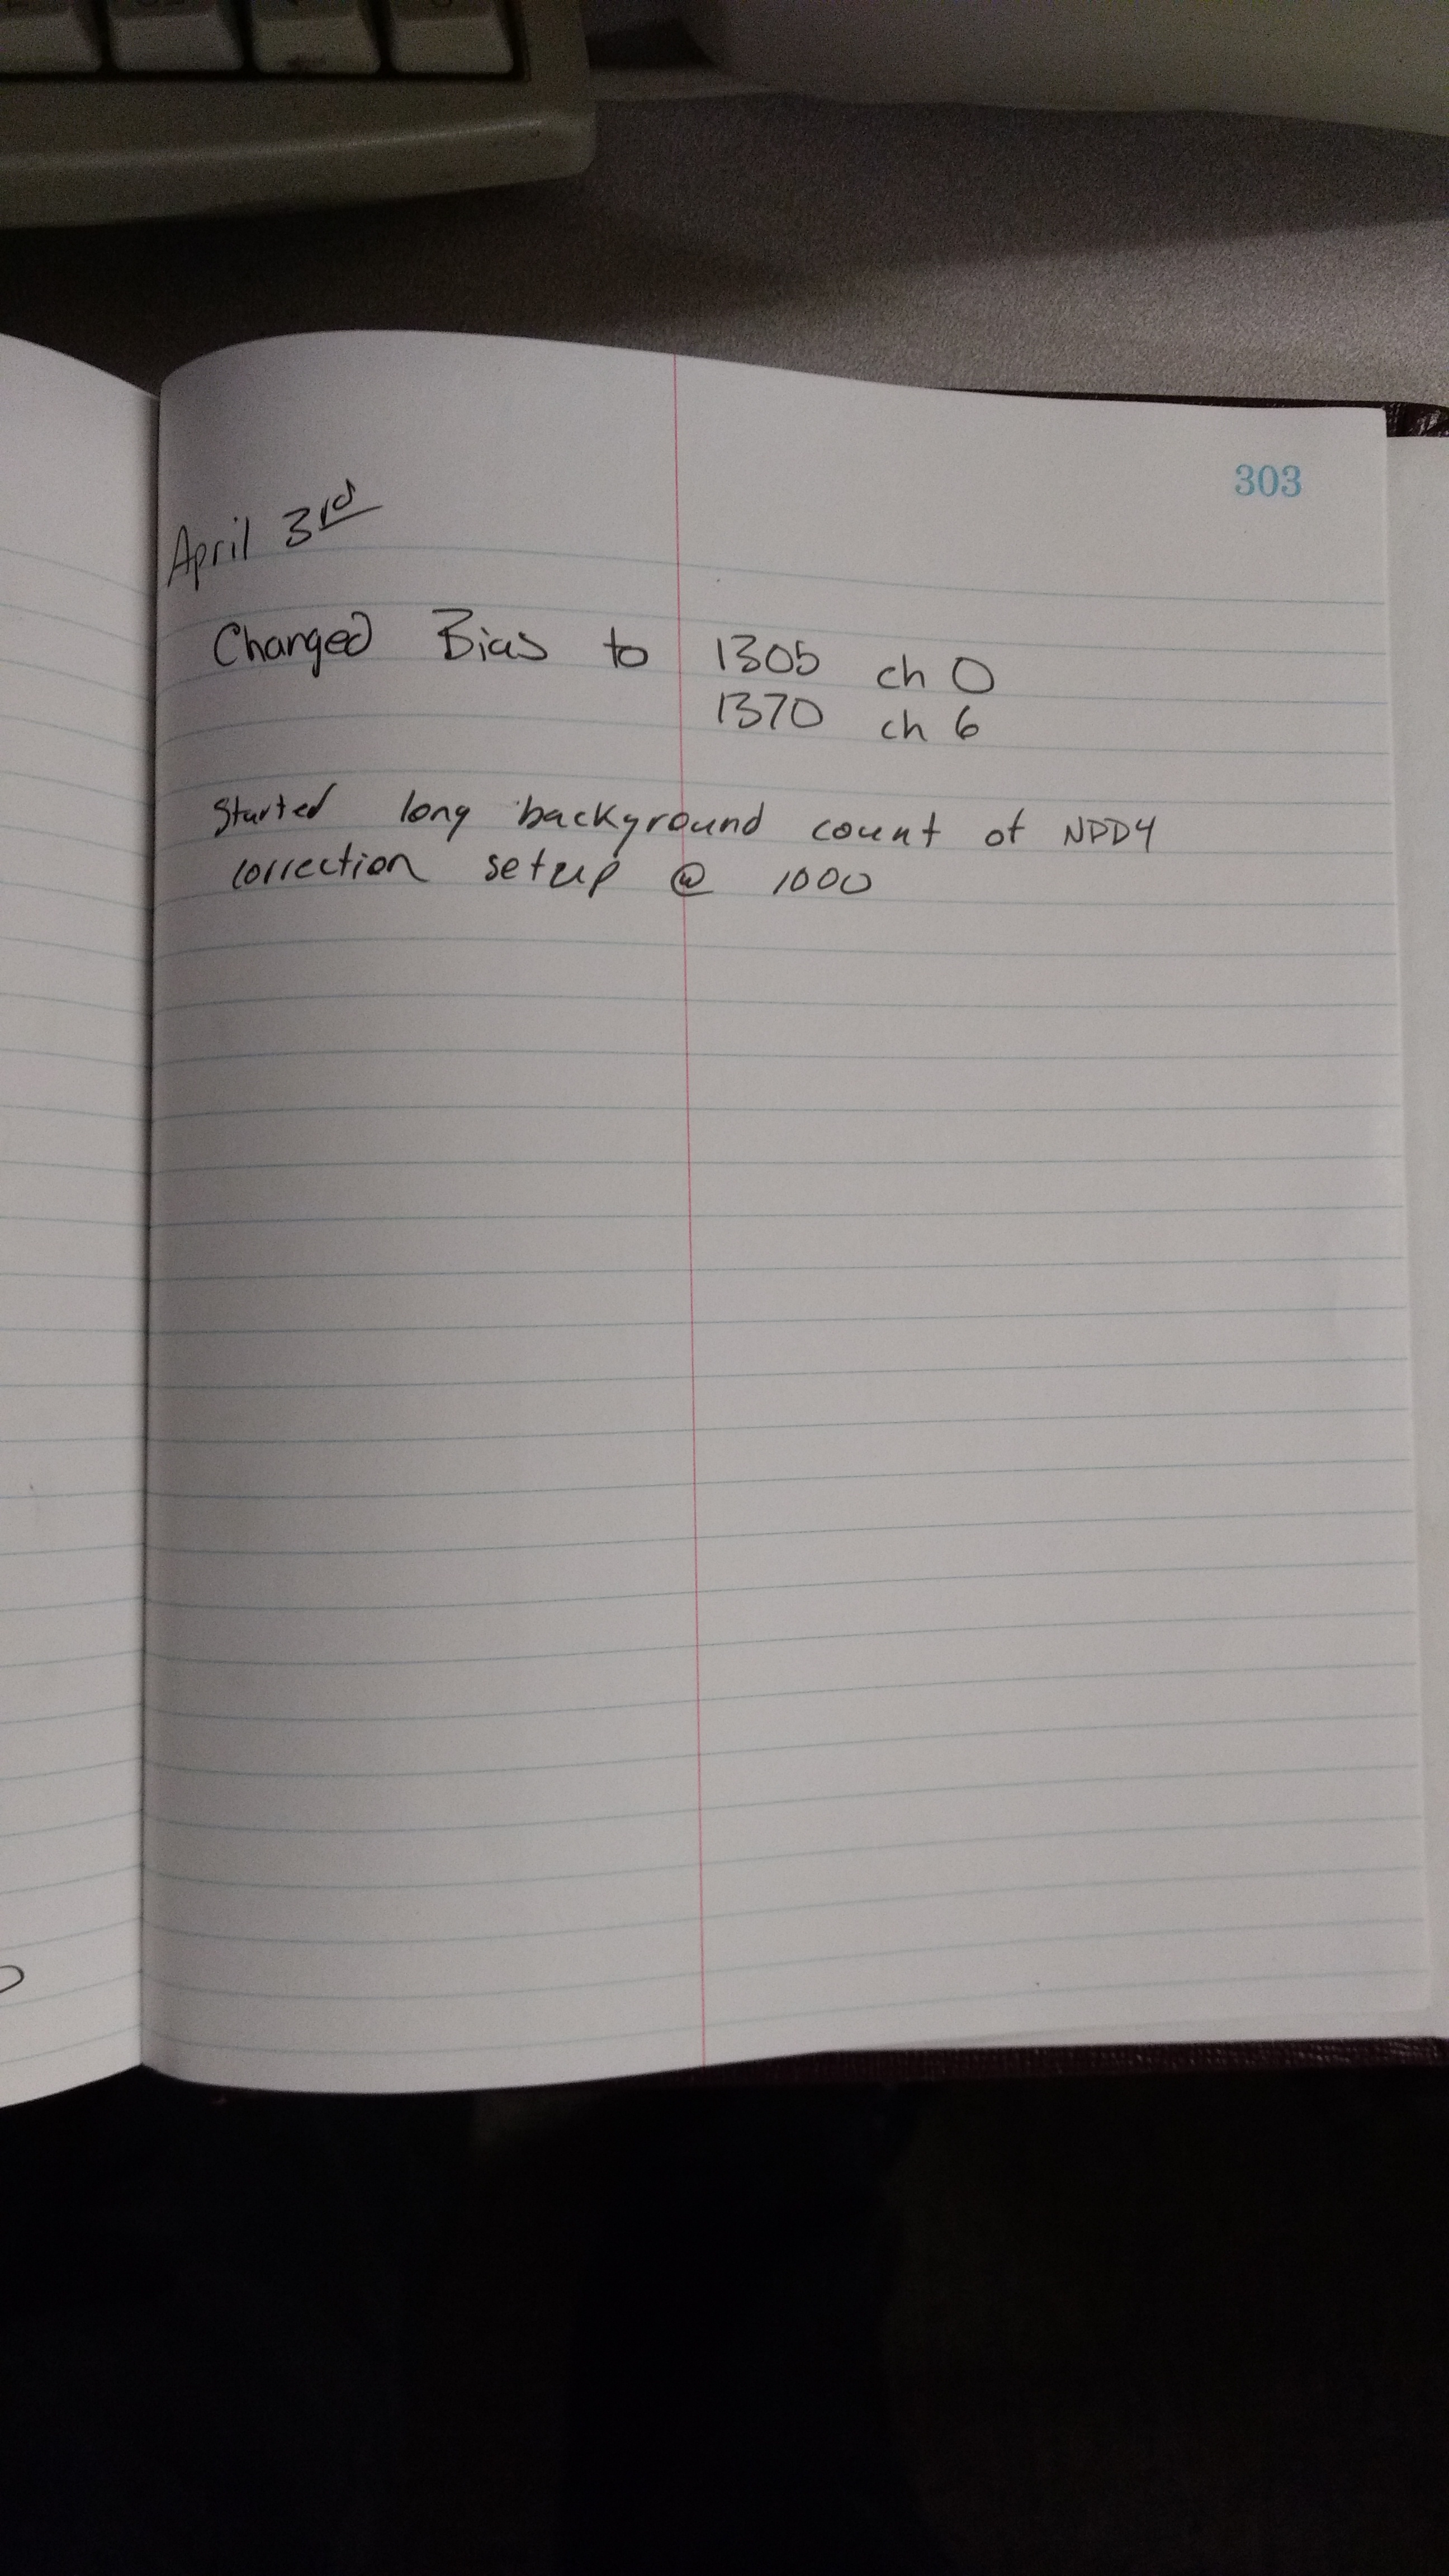 303
April 3rd
Changed Bias to 1305 ch 0
1370 ch 6
Started long background count of NDD4
correction setup @ 1000